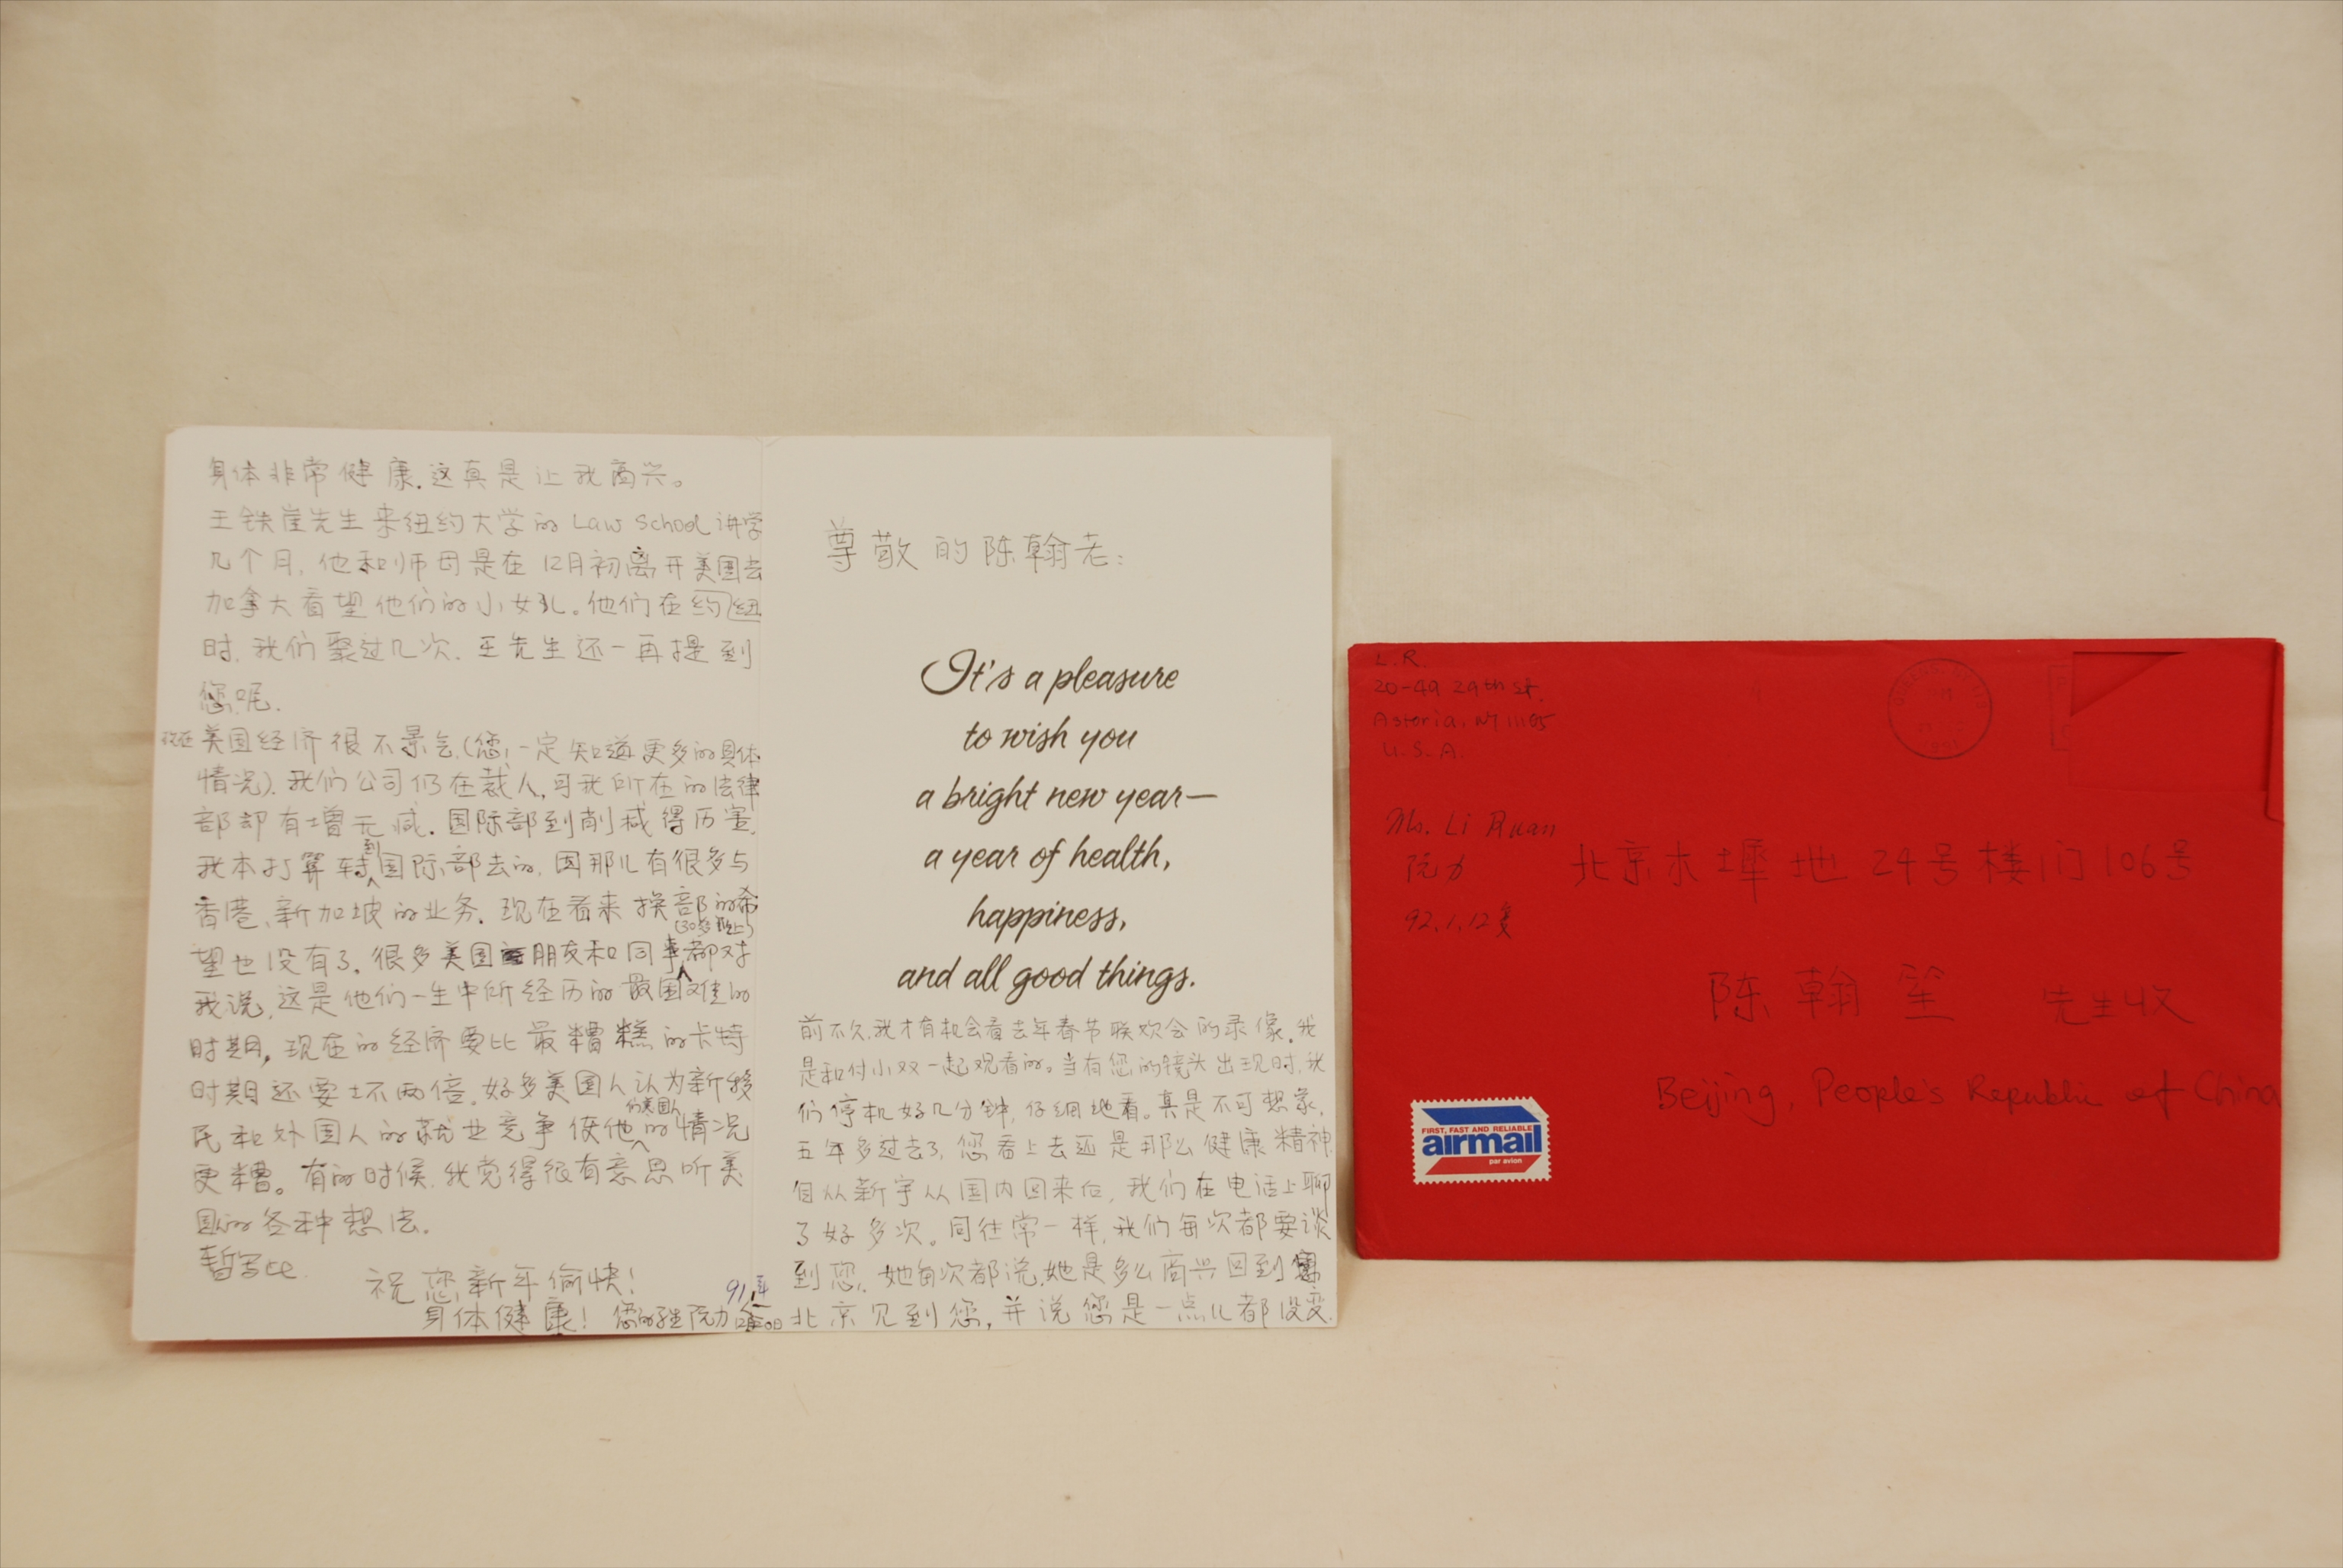 尊敬的陈翰老:
It's a pleasure
to wish you
a bright new year—
a year of health,
happiness,
and all good things.
前不久,我才有机会看去年春节联欢会的录像。我
是和付小双一起观看的。当有您的镜头出现时,我
们停机好几分钟,仔细地看。真是不可想象,
五年多过去了,您看上去还是那么健康精神.
自从新宇从国内回来后,我们在电话上聊
了好多次。同往常一样,我们每次都要谈
到您.她每次都说,她是多么高兴回到
北京见到您,并说您是一点儿都没变.
身体非常健康.这真是让我高兴。
王铁崖先生来纽约大学的Law School讲学
几个月,他和师母是在12月初离开美国去
加拿大看望他们的小女儿。他们在纽约
时,我们聚过几次.王先生还一再提到
您呢.
现在美国经济很不景气.(您一定知道更多的具体
情况).我们公司仍在裁人,可我所在的法律
部却有增无减.国际部到削减得历害.
我本打算转到国际部去的,因那儿有很多与
香港、新加坡的业务.现在看来换部的希
望也没有了。很多美国朋友和同事(30岁以上)都对
我说,这是他们一生中所经历的最困难的
时期,现在的经济要比最糟糕的卡特
时期还要坏两倍.好多美国人认为新移
民和外国人的就业竞争使他们美国人的情况
更糟。有的时候,我觉得很有意思听美
国人的各种想法.
暂写此
祝您新年愉快!
身体健康! 您的学生阮力
91年
L.R.
20-49 29th St.
Astoria, NY 11105
U.S.A.
Ms. Li Ruan
阮力
92.1.12
北京木墀地24号楼1门106号
陈翰笙 先生收
Beijing, People's Republic of China
FIRST, FAST AND RELIABLE
airmail
par avion